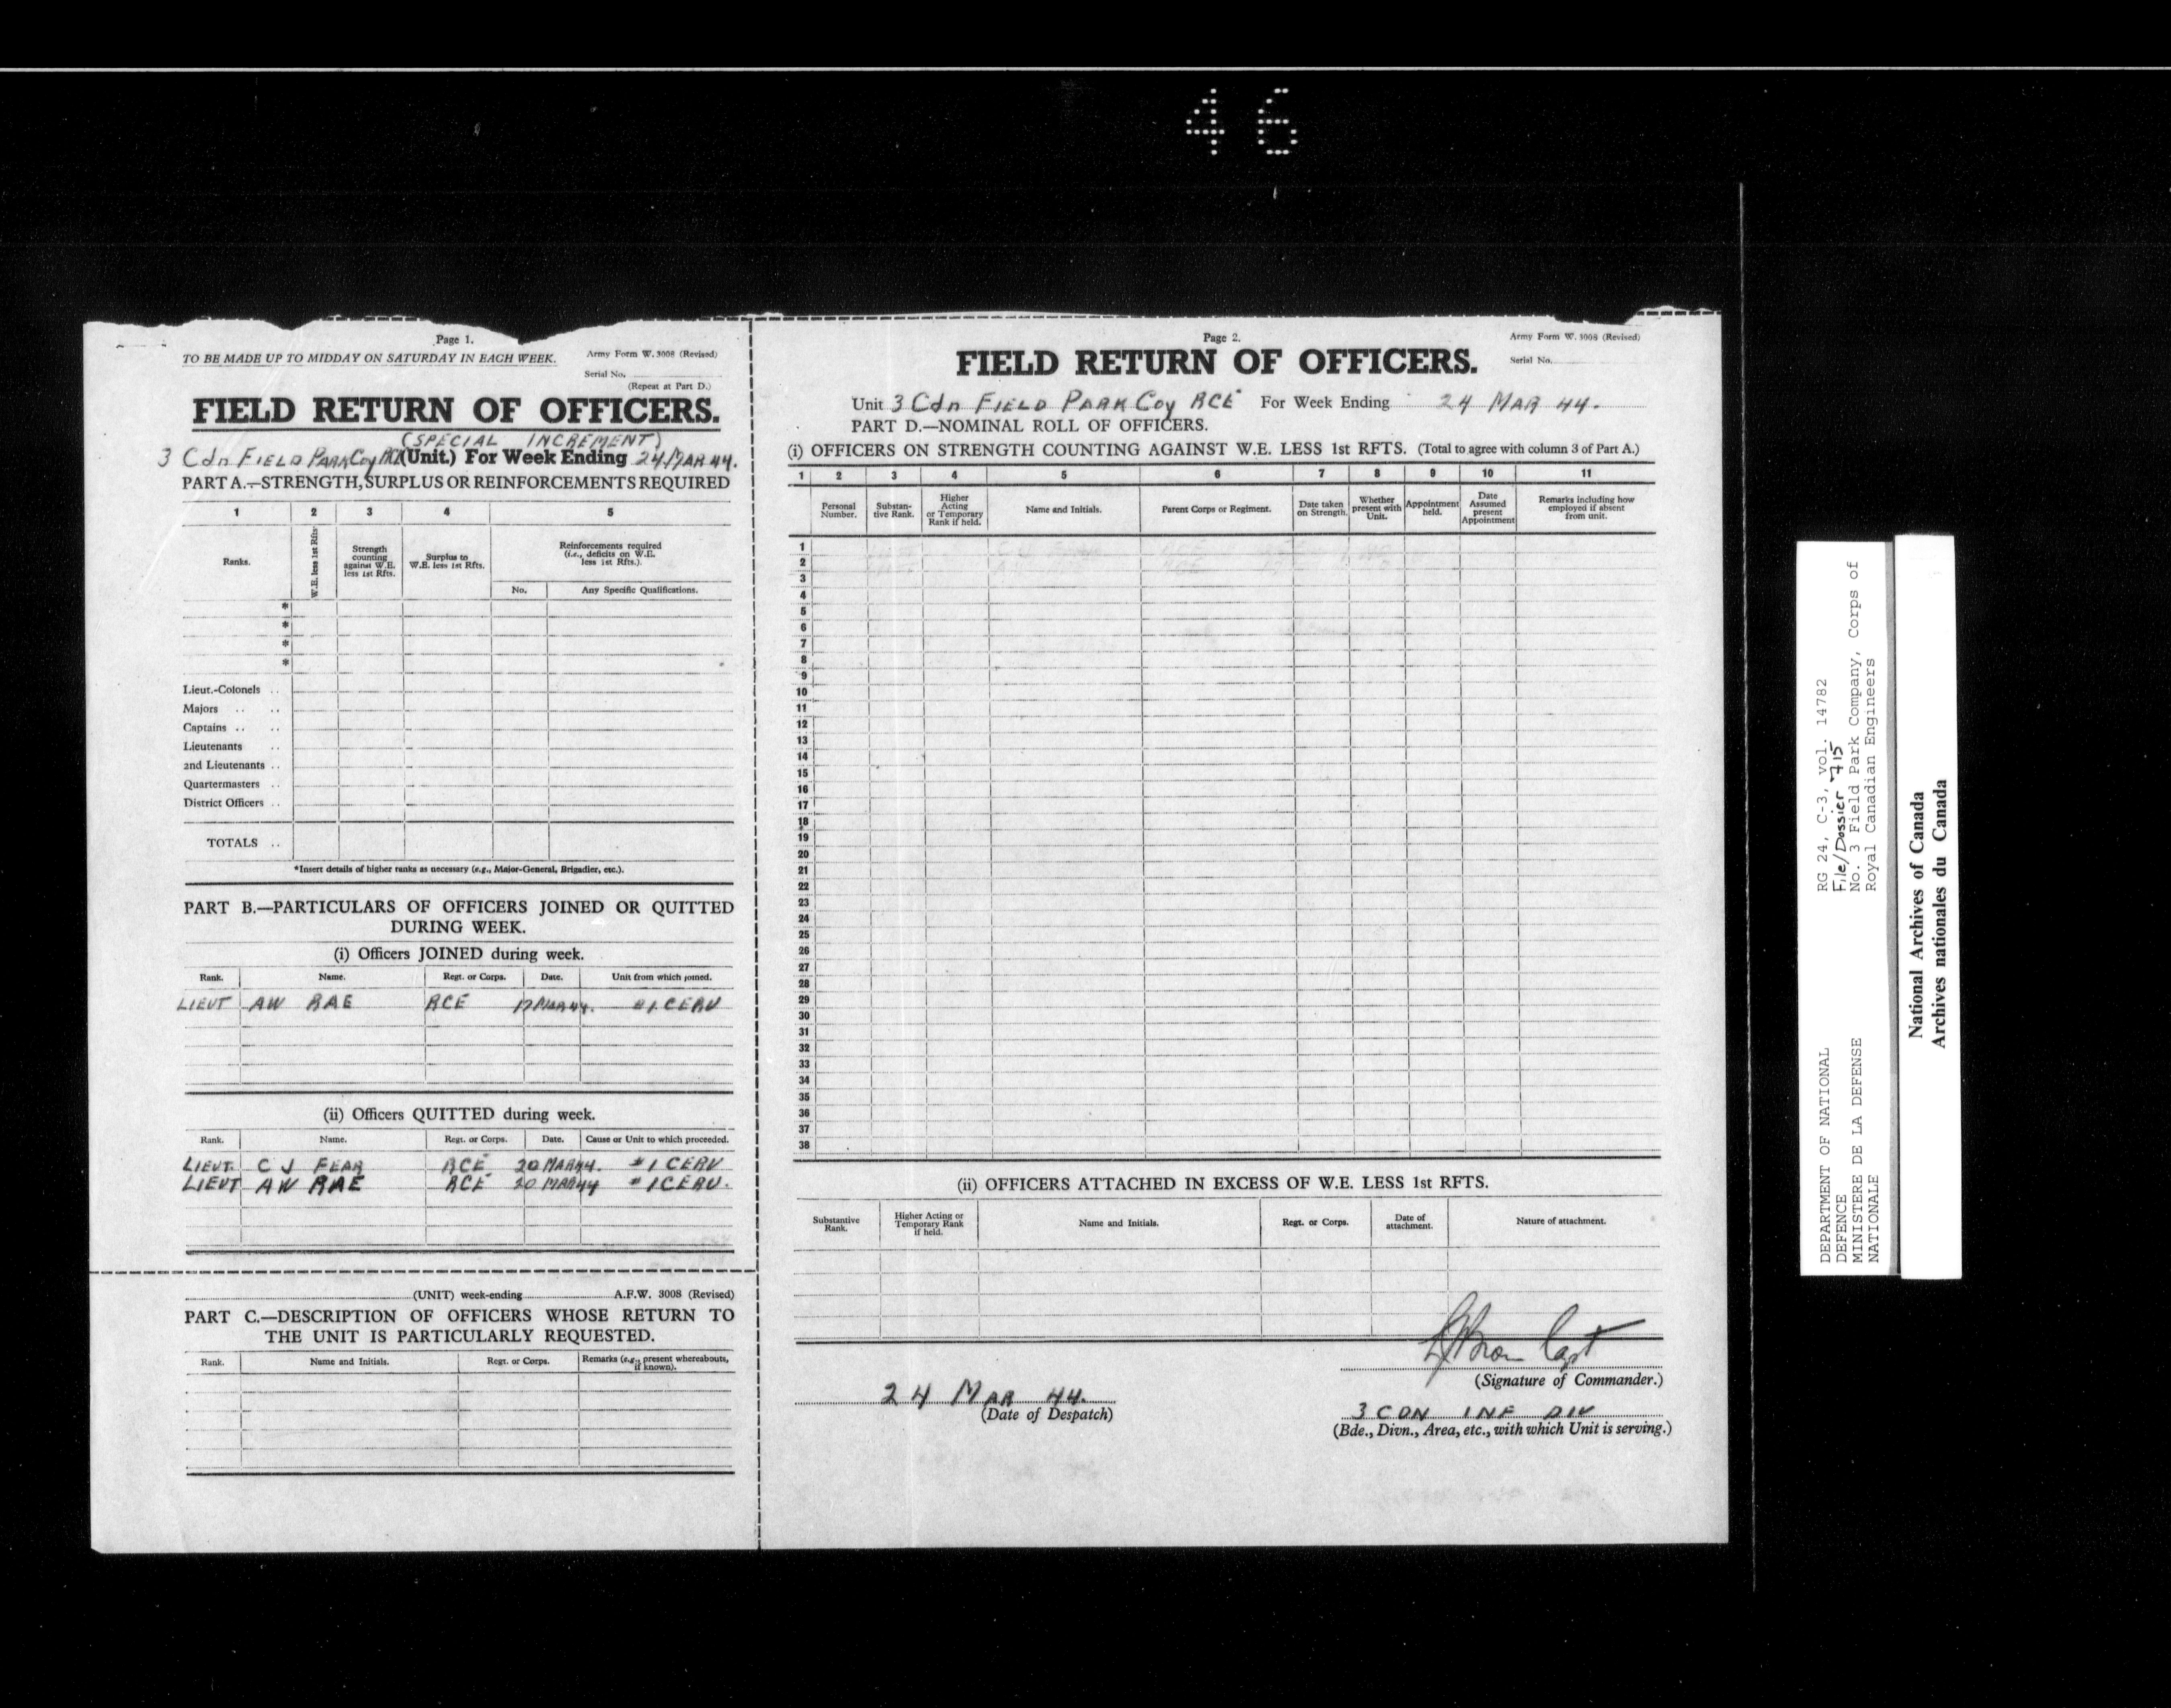 46
Page 1.
TO BE MADE UP TO MIDDAY ON SATURDAY IN EACH WEEK.
Army Form W. 3008 (Revised)
Serial No.
(Repeat at Part D.)
FIELD RETURN OF OFFICERS.
(SPECIAL INCREMENT)
3 Cdn FIELD PARK Coy RCE (Unit.) For Week Ending 24 MAR 44.
PART A.—STRENGTH, SURPLUS OR REINFORCEMENTS REQUIRED
1 2 3 4 5
Ranks.
W.E. less 1st Rfts.
Strength counting against W.E. less 1st Rfts.
Surplus to W.E. less 1st Rfts.
Reinforcements required (i.e., deficits on W.E. less 1st Rfts.).
No. Any Specific Qualifications.
*
*
*
*
Lieut.-Colonels ..
Majors .. ..
Captains .. ..
Lieutenants ..
2nd Lieutenants ..
Quartermasters ..
District Officers ..
TOTALS ..
*Insert details of higher ranks as necessary (e.g., Major-General, Brigadier, etc.).
PART B.—PARTICULARS OF OFFICERS JOINED OR QUITTED
DURING WEEK.
(i) Officers JOINED during week.
Rank. Name. Regt. or Corps. Date. Unit from which joined.
LIEUT AW RAE RCE 17 MAR 44. #1 CERU
(ii) Officers QUITTED during week.
Rank. Name. Regt. or Corps. Date. Cause or Unit to which proceeded.
LIEUT. C J FEAR RCE 20 MAR 44. #1 CERU
LIEUT AW RAE RCE 20 MAR 44 #1 CERU.
(UNIT) week-ending A.F.W. 3008 (Revised)
PART C.—DESCRIPTION OF OFFICERS WHOSE RETURN TO
THE UNIT IS PARTICULARLY REQUESTED.
Rank. Name and Initials. Regt. or Corps. Remarks (e.g., present whereabouts, if known).
Page 2.
Army Form W. 3008 (Revised)
Serial No.
FIELD RETURN OF OFFICERS.
Unit 3 Cdn FIELD PARK Coy RCE For Week Ending 24 MAR 44.
PART D.—NOMINAL ROLL OF OFFICERS.
(i) OFFICERS ON STRENGTH COUNTING AGAINST W.E. LESS 1st RFTS. (Total to agree with column 3 of Part A.)
1 2 3 4 5 6 7 8 9 10 11
Personal Number.
Substantive Rank.
Higher Acting or Temporary Rank if held.
Name and Initials.
Parent Corps or Regiment.
Date taken on Strength.
Whether present with Unit.
Appointment held.
Date Assumed present Appointment
Remarks including how employed if absent from unit.
1
2
3
4
5
6
7
8
9
10
11
12
13
14
15
16
17
18
19
20
21
22
23
24
25
26
27
28
29
30
31
32
33
34
35
36
37
38
(ii) OFFICERS ATTACHED IN EXCESS OF W.E. LESS 1st RFTS.
Substantive Rank.
Higher Acting or Temporary Rank if held.
Name and Initials.
Regt. or Corps.
Date of attachment.
Nature of attachment.
Capt
(Signature of Commander.)
24 MAR 44.
(Date of Despatch)
3 CDN INF DIV
(Bde., Divn., Area, etc., with which Unit is serving.)
DEPARTMENT OF NATIONAL
DEFENCE
MINISTERE DE LA DEFENSE
NATIONALE
RG 24, C-3, vol. 14782
File/Dossier 715
No. 3 Field Park Company, Corps of
Royal Canadian Engineers
National Archives of Canada
Archives nationales du Canada